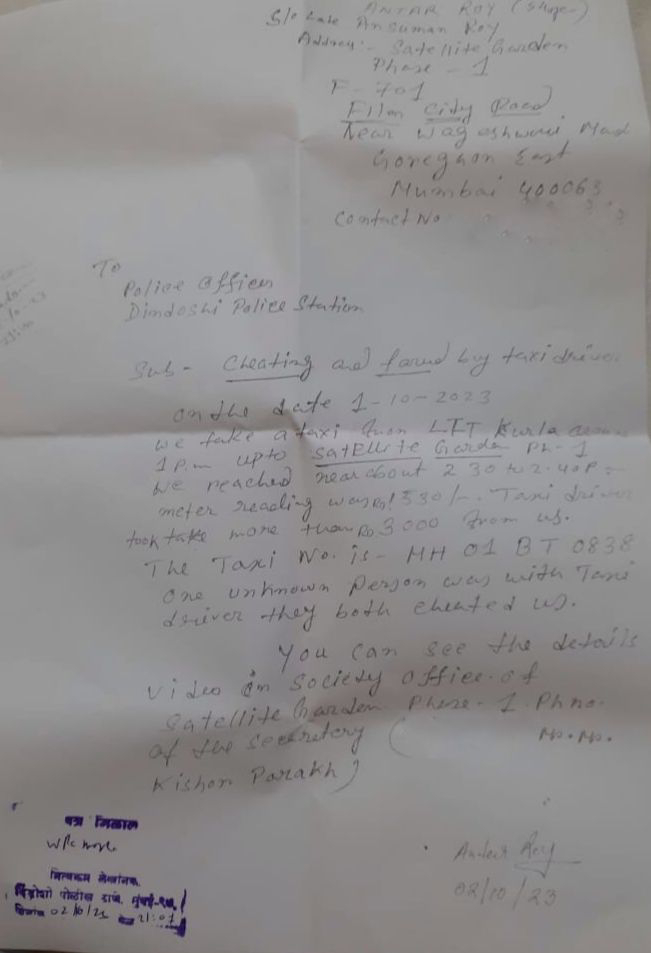 ANTAR ROY
S/o Late Ansuman Roy
Address:- Satellite Garden
Phase - 1
F-701
Film City Road
Near Wageshwari Mad
Goregaon East
Mumbai 400063
Contact No
To
Police Officer
Dindoshi Police Station
Sub- Cheating and by taxi driver
On the date 1-10-2023
we take a taxi from LTT Kurla
1 p.m upto Satellite Garden Ph-1
We reached near about 2 30 to 2.40 P
meter reading was Rs! 530/-. Taxi driver
took take more than Rs. 3000 from us.
The Taxi No. is - MH 01 BT 0838
One unknown person was with Taxi
driver they both cheated us.
You can see the details
video in society office of
Satellite Garden Phase-1. Ph no.
of the secretery (
Kishor Parakh)
Antar Roy
02/10/23
पत्र मिळाले
दिंडोशी पोलीस ठाणे, मुंबई
दिनांक 02/10/23 वेळ 21:07